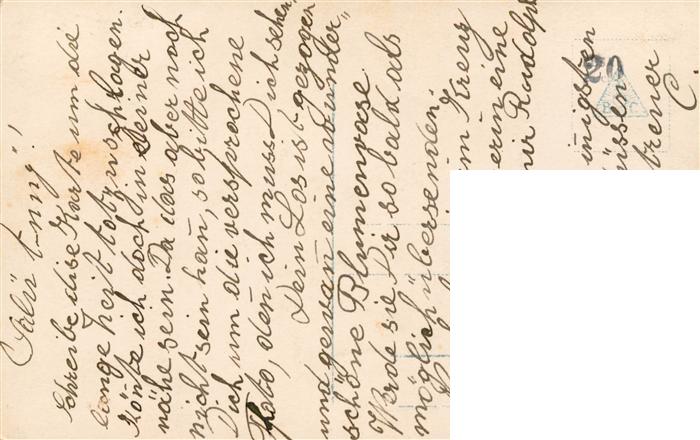 schreibe dise Karte um die
lange Zeit totzuschlagen.
Könte ich doch in deiner
nähe sein. Da das aber noch
nicht sein kan̄, so bitte ich
Dich um die versprochene
Foto, den̄ ich muss Dich sehen.
Dein Los ist gezogen
und gewan̄ eine wunder-
schöne Blumenvase.
Werde sie Dir so bald als
möglich übersenden.
Kreuz
erin eine
mir Rudolf
innigsten
Küssen
treuer
C.
20